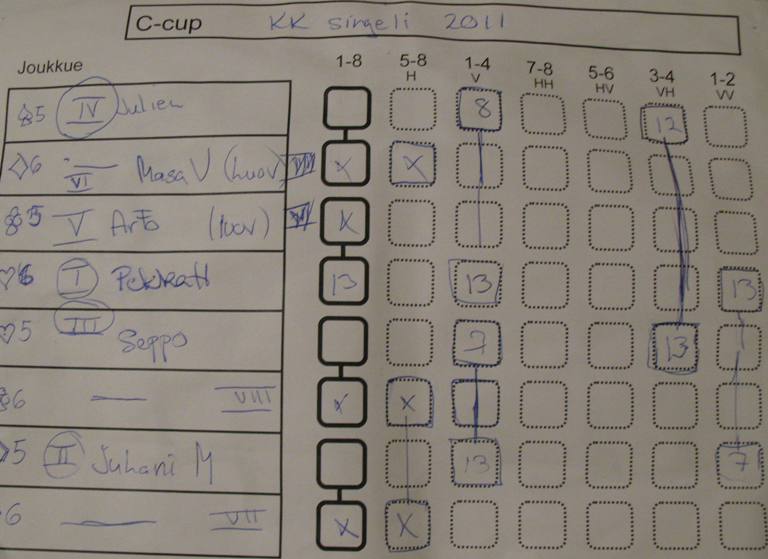 C-cup KK singeli 2011
Joukkue 1-8 5-8 1-4 7-8 5-6 3-4 1-2
H V HH HV VH VV
♧5 IV Julien 8 12
♢6 VI Masa V (luov) VIII x x
5 V Arto (luov) VI x
♡6 I PekkaH 13 13 13
♡5 III Seppo 7 13
6 — VIII x x
5 II Juhani M 13 7
6 — VII x x